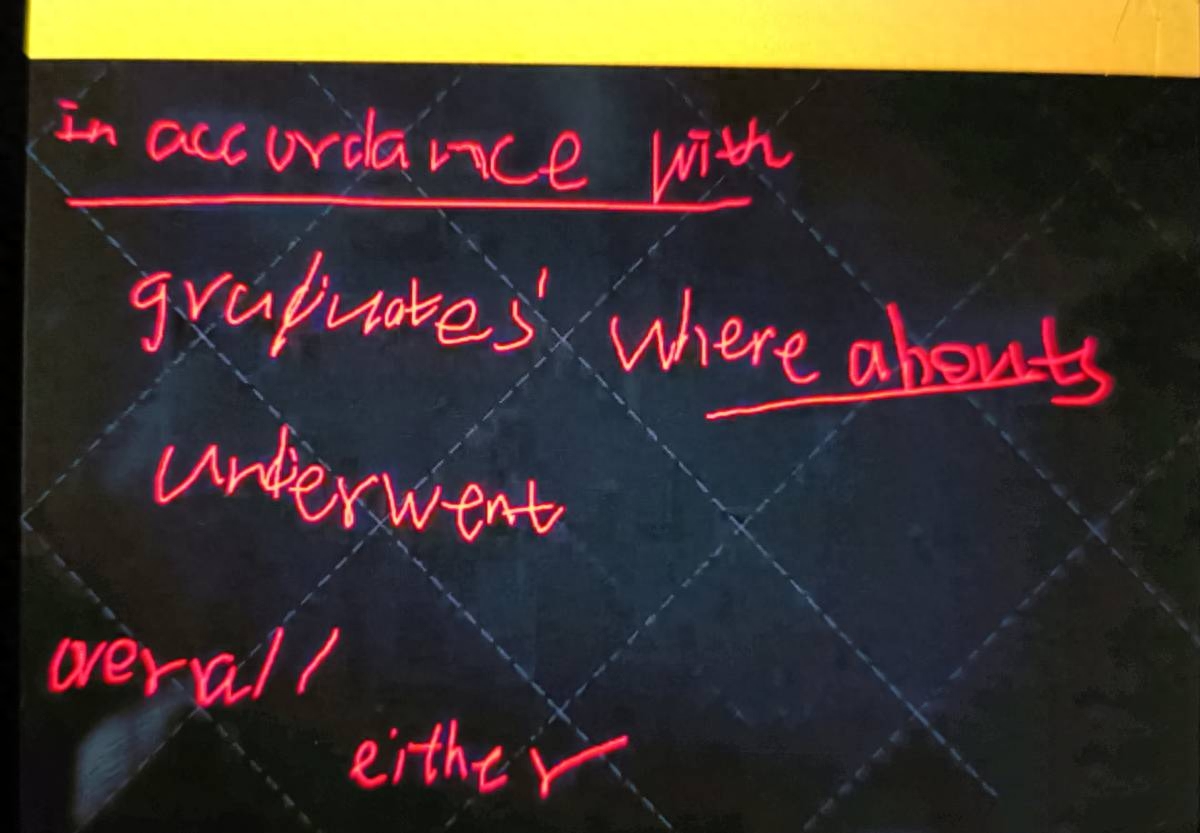 in accordance with
graduates' where abouts
underwent
overall
either